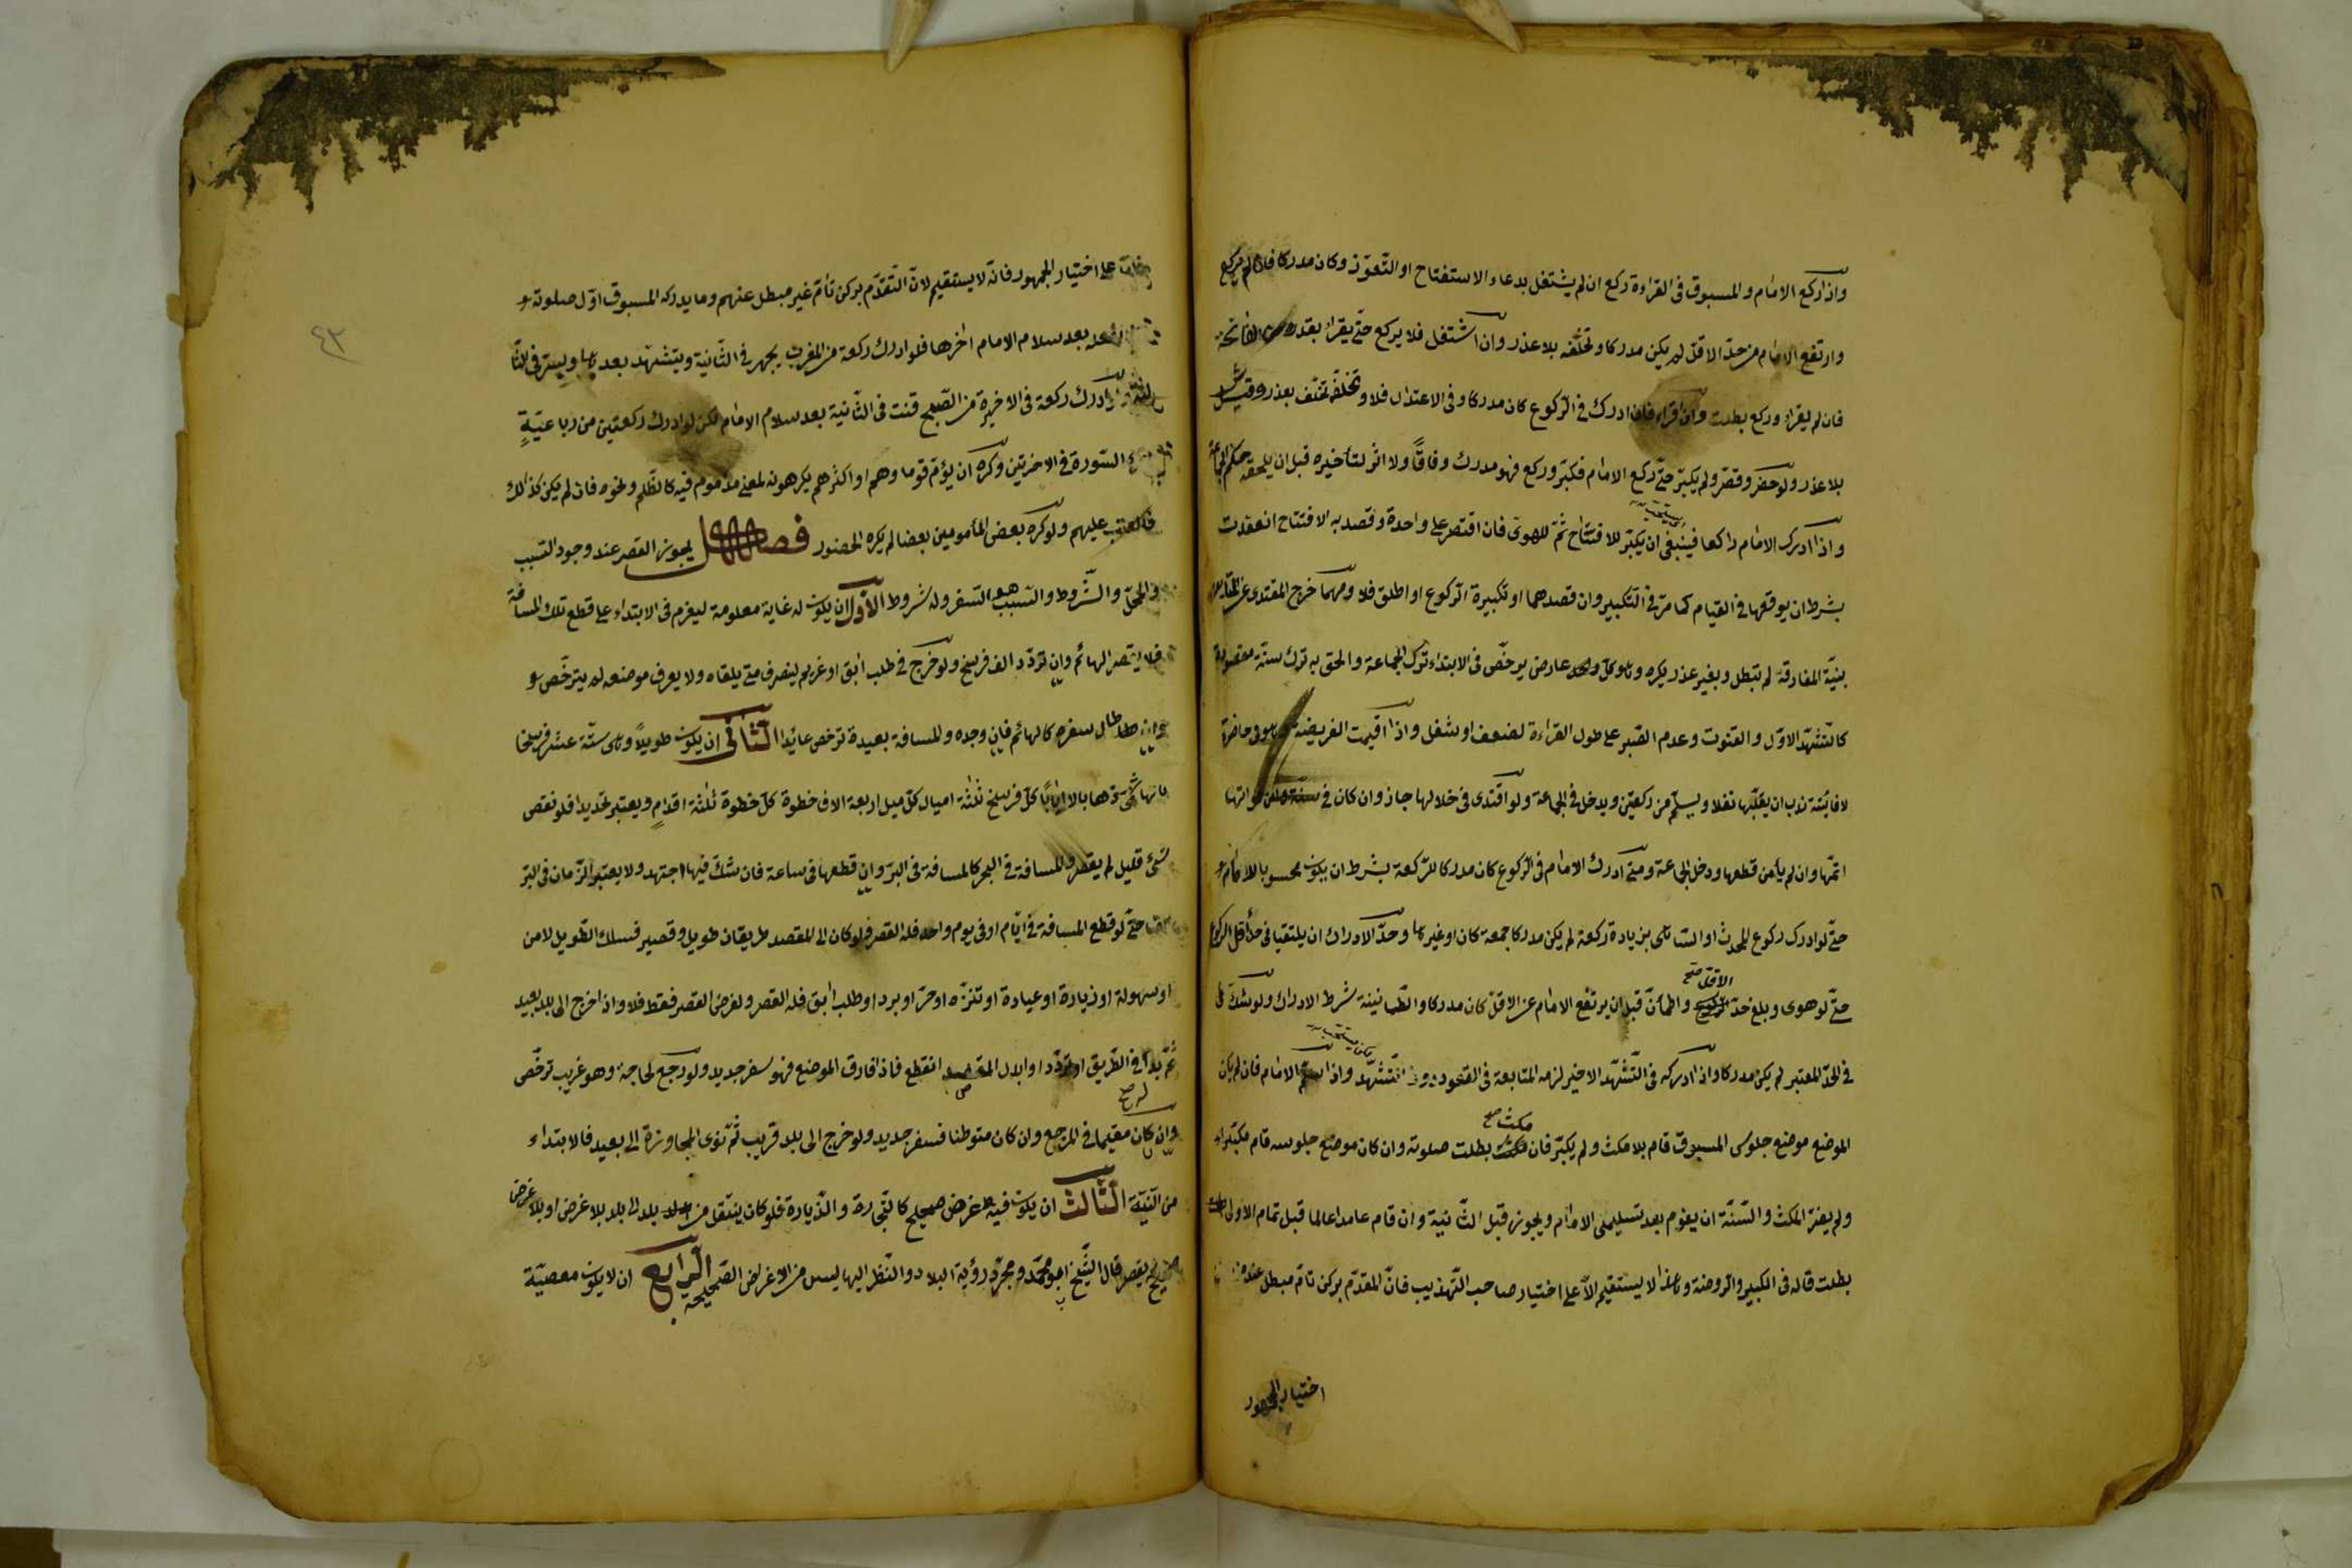 واذا ركع الامام والمسبوق فى القراءة ركع ان لم يشتغل بدعاء الاستفتاح او التّعوّذ وكان مدركا فان لم يركع
وارتفع الامام من حدّ الاقلّ لم يكن مدركا وتخلّفه بلا عذر وان اشتغل فلا يركع حتّى يقراء بقدره من الفاتحة
فان لم يقراء وركع بطلت وان قراء فان ادرك فى الرّكوع كان مدركا وفى الاعتدال فلا وتخلّفه تخلّف بعذر وقيل
بلا عذر ولو حضر وقصّر ولم يكبّر حتّى ركع الامام فكبّر وركع فهو مدرك وفاقًا ولا اثر لتأخيره قبل ان يلحقه حكم الجماعة
واذا ادرك الامام راكعا فينبغى ان يكبّر للافتتاح ثمّ للهوىّ فان اقتصر على واحدة وقصد به الافتتاح انعقدت
بشرط ان يوقعها فى القيام كما مرّ فى التكبير وان قصدهما او تكبيرة الركوع او اطلق فلا ومهما خرج المقتدى عن
بنيّة المفارقة لم تبطل وبغير عذر يكره وهو كلّ عارض يرخّص فى الابتداء ترك الجماعة والحق به ترك سنّة مقصودة
كالتّشهّد الاوّل والقنوت وعدم الصّبر على طول القراءة لضعف او شغل واذا اقيمت الفريضة وهو فى حاضرة
لا فايتة ندب ان يقلّبها نفلا ويسلّم من ركعتين ويدخل فى الجماعة ولو اقتدى فى خلالها جاز وان كان فى
اتمّها وان لم يأمن قطعها ودخل الجماعة ومتى ادرك الامام فى الرّكوع كان مدركا للرّكعة بشرط ان يكون محسوبا للامام
حتّى لو ادرك ركوع المحدث او السّاهى بزيادة ركعة لم يكن مدركا جمعة كان او غيرها وحدّ الادراك ان يلتقيا فى حدّ اقلّ الركوع
حتّى لو هوى وبلغ حدّ الاقلّ صح واطمأنّ قبل ان يرتفع الامام عن الاقلّ كان مدركا والطّمانينة شرط الادراك ولو شكّ فى
فى الحدّ المعتبر لم يكن مدركا واذا ادركه فى التّشهّد الاخير لزمه المتابعة فى القعود دون التّشهّد واذا سلّم الامام فان لم يكن
الموضع موضع جلوس المسبوق قام بلا مكث ولم يكبّر فان مكث صح بطلت صلوته وان كان موضع جلوسه قام مكبّرا
ولم يضرّ المكث والسّنّة ان يقوم بعد تسليمتى الامام ويجوز قبل الثّانية وان قام عامدا عالما قبل تمام الاولى
بطلت قاله فى الكبير والرّوضة وهذا لا يستقيم الاّ على اختيار صاحب التّهذيب فانّ المقدّم بركن تامّ مبطل عنده
اختيار الجمهور
على اختيار الجمهور فانّه لا يستقيم لانّ التّقدّم بركن تامّ غير مبطل عندهم وما يدركه المسبوق اوّل صلوته و
بعد سلام الامام اخرها فلو ادرك ركعة من المغرب يجهر فى الثّانية ويتشهّد بعدها ويسرّ فى الثّا
ادرك ركعة فى الاخيرة من الصّبح قنت فى الثّانية بعد سلام الامام لكن لو ادرك ركعتين من رباعيّةٍ
السّورة فى الاخرتين وكره ان يؤمّ قوما وهم او اكثرهم يكرهونه لمعنى مذموم فيه كالظّلم ونحوه فان لم يكن كذلك
فالعتب عليهم ولو كره بعض المأمومين بعضا لم يكره الحضور فصل يجوز القصر عند وجود السّبب
والمحلّ والشّروط والسّبب هو السّفر وله شروط الاوّل ان يكون له غاية معلومة ليعزم فى الابتداء على قطع تلك المسافة
فلا يقصر الهائم وان تردّد الف فرسخ ولو خرج فى طلب ابق او غريم لينصرف متى يلقاه ولا يعرف موضعه لم يترخّص و
وان طال سفره كالهائم فان وجده والمسافة بعيدة ترخّص عائدا الثّانى ان يكون طويلاً وهى ستّة عشر فرسخا
بالهاشمىّ ذهابا لا ايابًا كلّ فرسخ ثلثة اميال كلّ ميل اربعة الاف خطوة كلّ خطوة ثلثة اقدامٍ ويعتبر تحديدا فلو نقص
شىء قليل لم يقصر والمسافة فى البحر كالمسافة فى البرّ وان قطعها فى ساعة فان شكّ فيها اجتهد ولا يعتبر الزّمان فى البرّ
حتّى لو قطع المسافة فى ايّام او فى يوم واحد فله القصر ولو كان الى المقصد طريقان طويل وقصير فسلك الطّويل لامن
او سهولة او زيارة او عيادة او تنزّه او حرّ او برد او طلب ابق فله القصر ولغرض القصر فقط فلا واذا خرج الى بلد بعيد
ثمّ بدا فى الطّريق او تردّد او ابدل المقصد انقطع فاذا فارق الموضع فهو سفر جديد ولو رجع لحاجة وهو غريب ترخّص
وان كان له صح مقيما فى المرجع وان كان متوطنا فسفر جديد ولو خرج الى بلد قريب ثمّ نوى المجاوزة الى بعيد فالابتداء
من النّيّة الثّالث ان يكون فيه غرض صحيح كالتّجارة والزّيارة فلو كان ينتقل من بلد الى بلد بلا غرض او بلا غرض
صحيح لم يقصر قال الشّيخ ابو محمّد ومجرّد رؤية البلاد والنّظر اليها ليس من الاغراض الصّحيحة الرّابع ان لا يكون معصيّة
٤٣